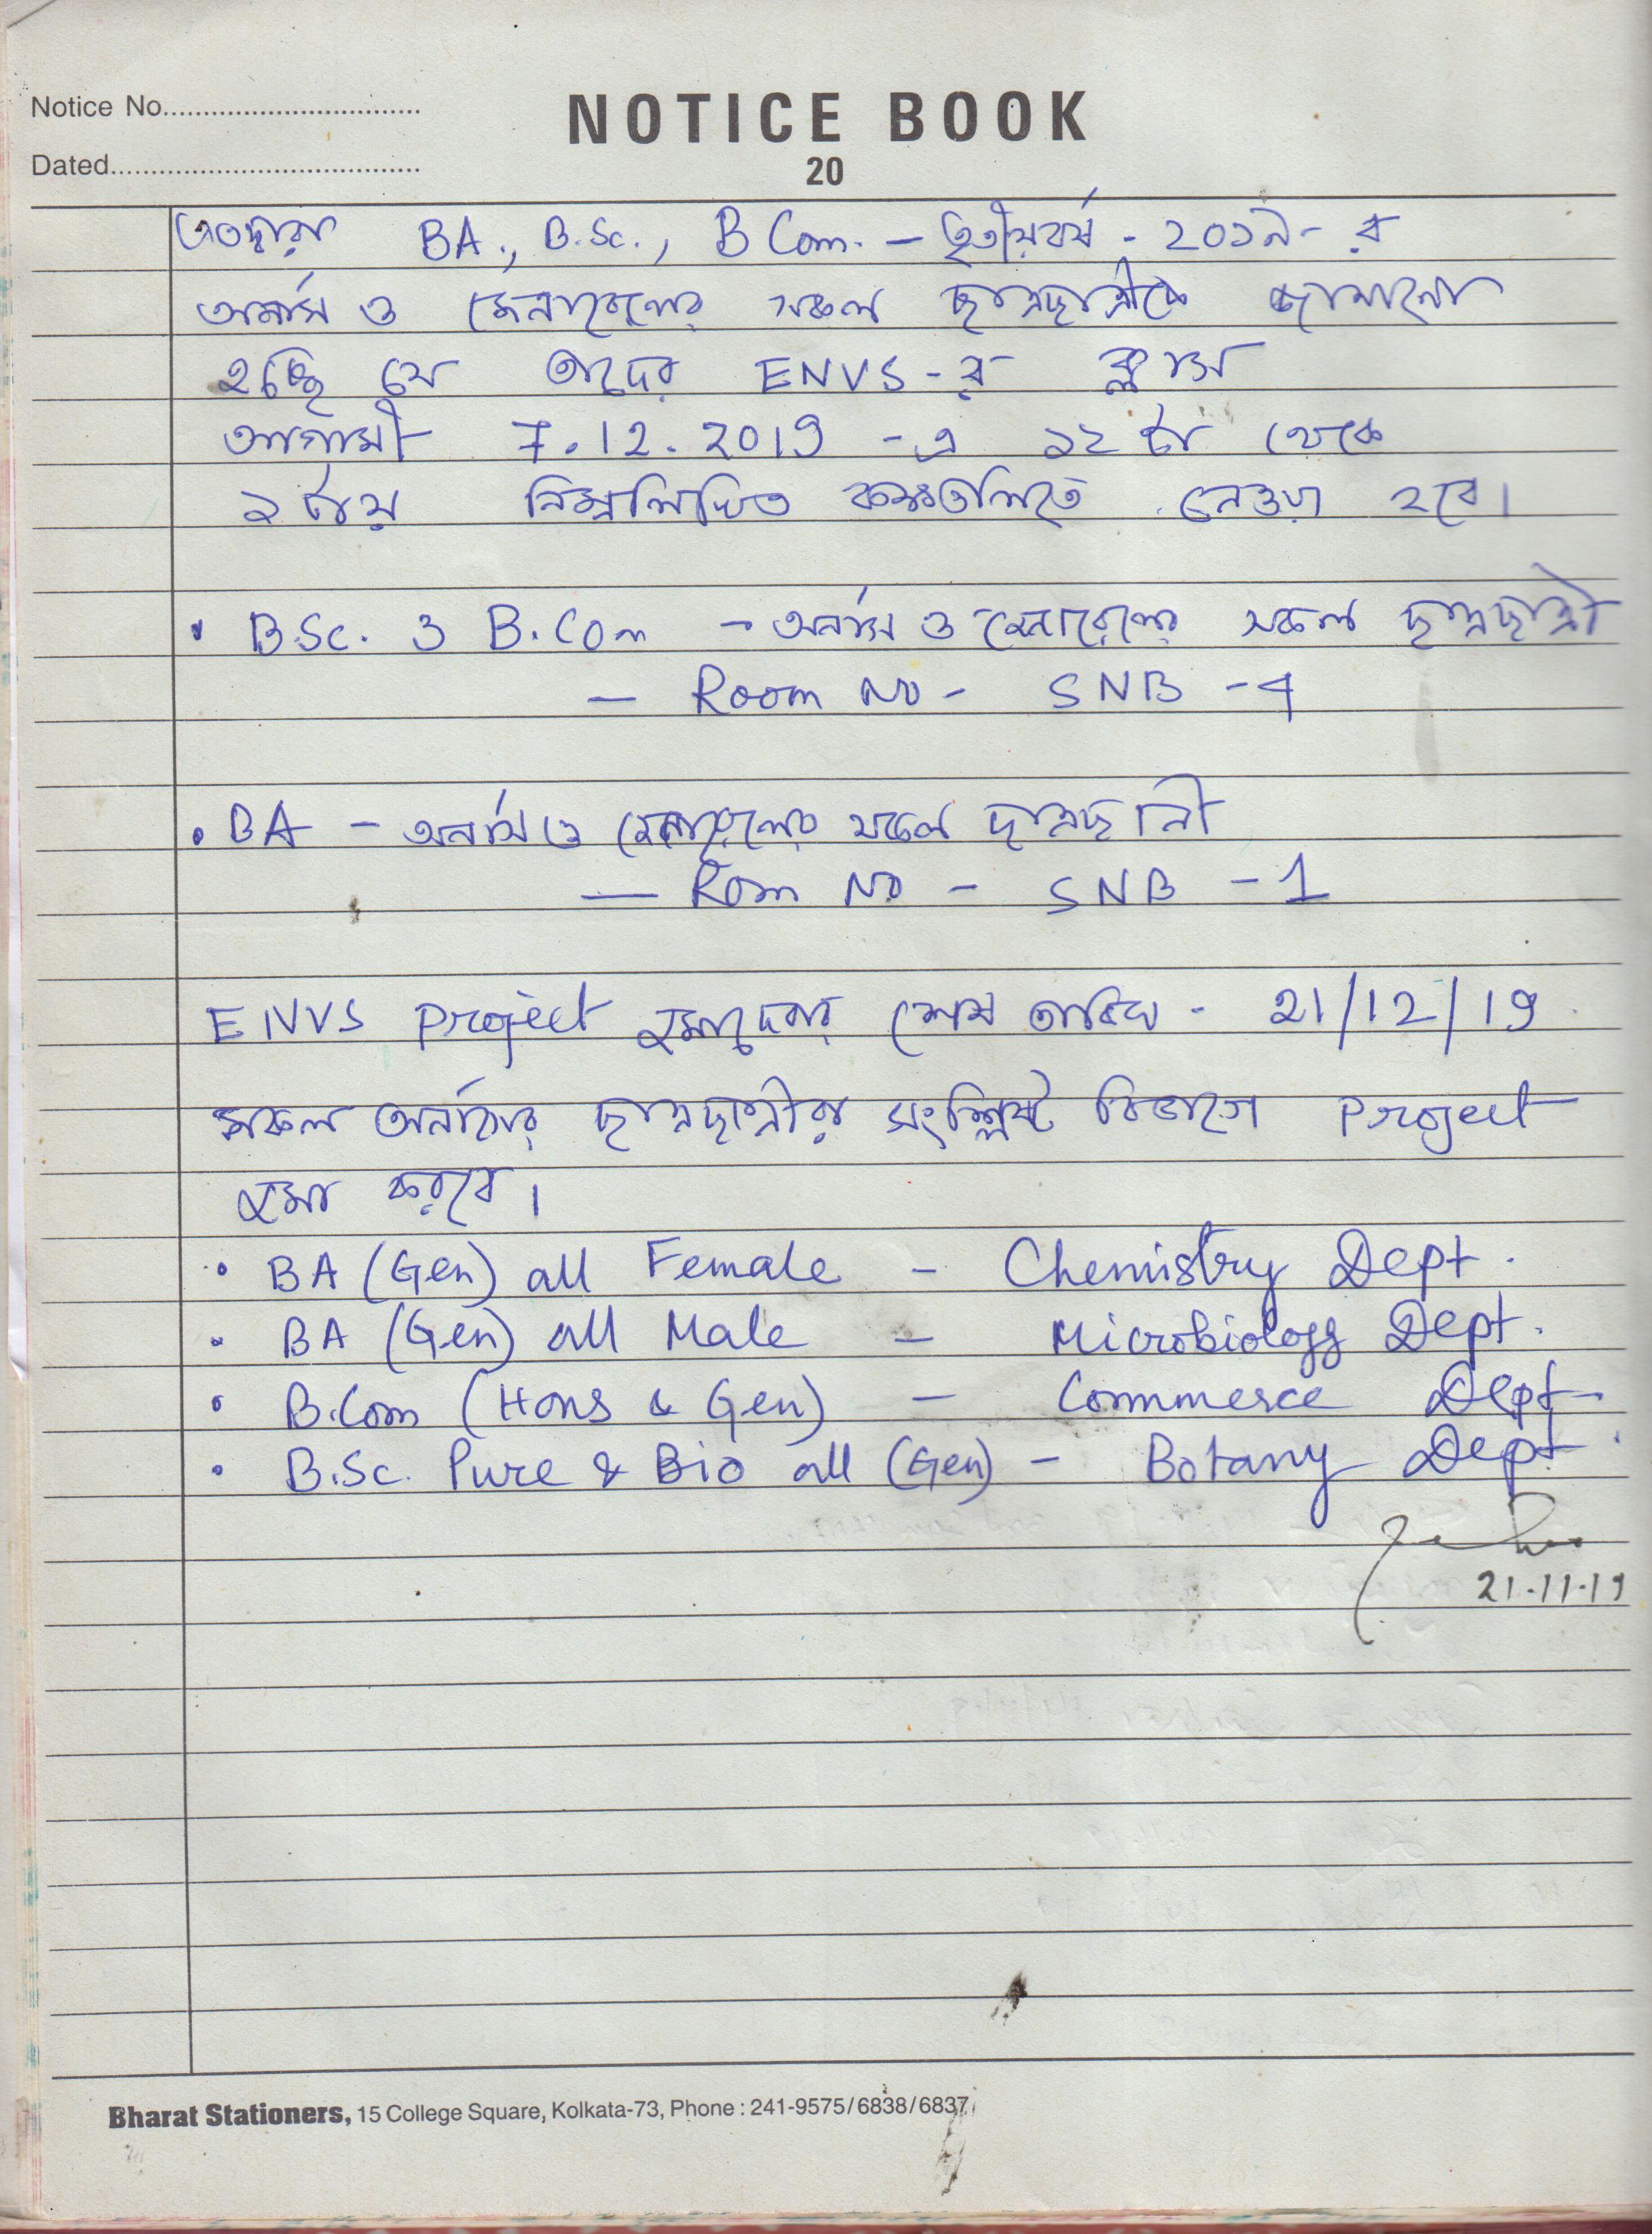 Notice No.................................
Dated.......................................
NOTICE BOOK
20
এতদ্বারা BA., B.Sc., B Com. – তৃতীয়বর্ষ - ২০১৯ - র
অনার্স ও জেনারেলের সকল ছাত্রছাত্রীকে জানানো
হচ্ছে যে তাদের ENVS - র ক্লাস
আগামী 7.12.2019 - এ ১২ টা থেকে
২ টায় নিম্নলিখিত কক্ষগুলিতে নেওয়া হবে।
• B.Sc. ও B.Com - অনার্স ও জেনারেলের সকল ছাত্রছাত্রী
— Room No - SNB - 4
• BA – অনার্স ও জেনারেলের সকল ছাত্রছাত্রী
— Room No - SNB - 1
ENVS Project জমাদেবার শেষ তারিখ - 21/12/19
সকল অনার্সের ছাত্রছাত্রীরা সংশ্লিষ্ট বিভাগে Project
জমা করবে।
• BA (Gen) all Female – Chemistry Dept.
• BA (Gen) all Male – Microbiology Dept.
• B.Com (Hons & Gen) – Commerce Dept.
• B.Sc. Pure & Bio all (Gen) – Botany Dept.
21.11.19
Bharat Stationers, 15 College Square, Kolkata-73, Phone : 241-9575/6838/6837